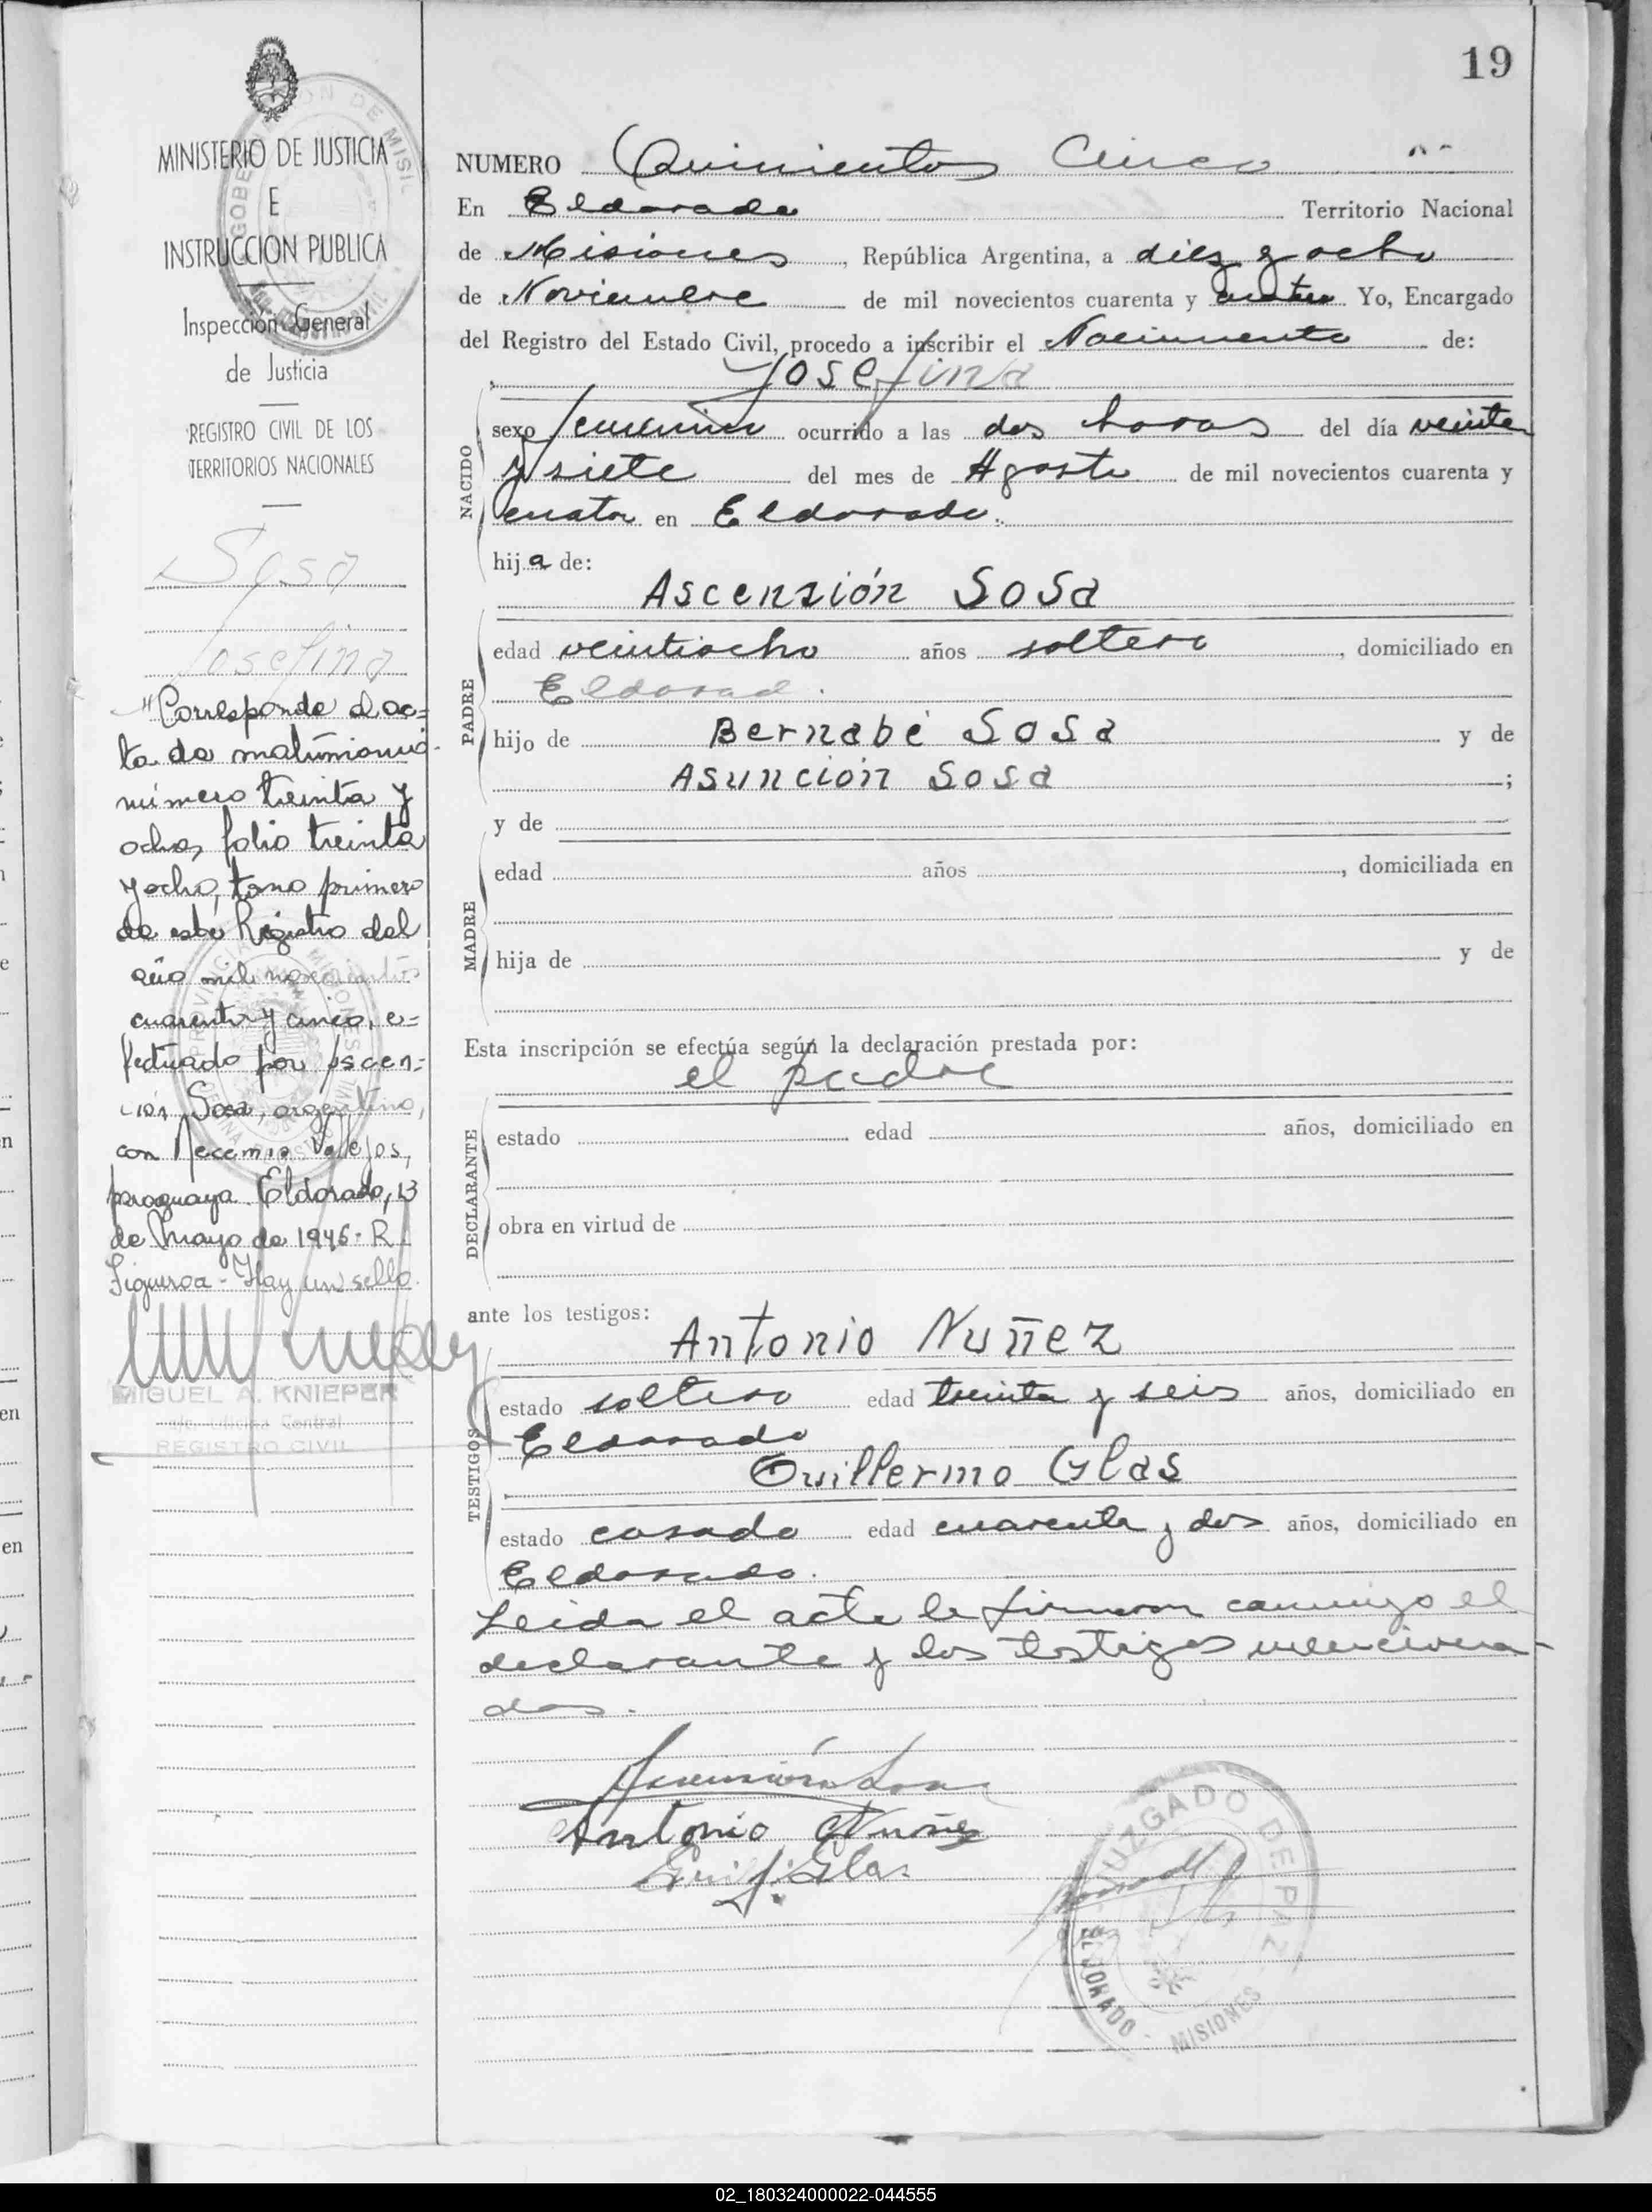 19
MINISTERIO DE JUSTICIA
E
INSTRUCCION PUBLICA
Inspección General
de Justicia
REGISTRO CIVIL DE LOS
TERRITORIOS NACIONALES
Sosa
Josefina
"Corresponde al ac=
ta de matrimonio
número treinta y
ocho, folio treinta
y ocho, tomo primero
de este Registro del
año mil novecientos
cuarenta y cinco, e=
fectuado por Ascen=
ción Sosa, argentino,
con Vallejos,
paraguaya. Eldorado, 13
de Mayo de 1946. R.
Figueroa - Hay un sello.
MIGUEL A. KNIEPER
Oficina Central
REGISTRO CIVIL
NUMERO Quinientos Cinco
En Eldorado Territorio Nacional
de Misiones, República Argentina, a diez y ocho
de Noviembre de mil novecientos cuarenta y cuatro Yo, Encargado
del Registro del Estado Civil, procedo a inscribir el Nacimiento de:
Josefina
NACIDO
sexo femenino ocurrido a las dos horas del día veinte
y siete del mes de Agosto de mil novecientos cuarenta y
cuatro en Eldorado.
hija de:
Ascensión Sosa
PADRE
edad veintiocho años soltero, domiciliado en
Eldorad.
hijo de Bernabé Sosa y de
Asunción Sosa;
y de
MADRE
edad años, domiciliada en
hija de y de
Esta inscripción se efectúa según la declaración prestada por:
el padre
DECLARANTE
estado edad años, domiciliado en
obra en virtud de
ante los testigos:
Antonio Nuñez
TESTIGOS
estado soltero edad treinta y seis años, domiciliado en
Eldorado
Guillermo Glas
estado casado edad cuarenta y dos años, domiciliado en
Eldorado.
Leida el acta la firman conmigo el
declarante y los testigos menciona-
dos.
Ascensión Sosa
Antonio Nuñez
Guill. Glas
JUZGADO DE PAZ
ELDORADO - MISIONES
02_180324000022-044555